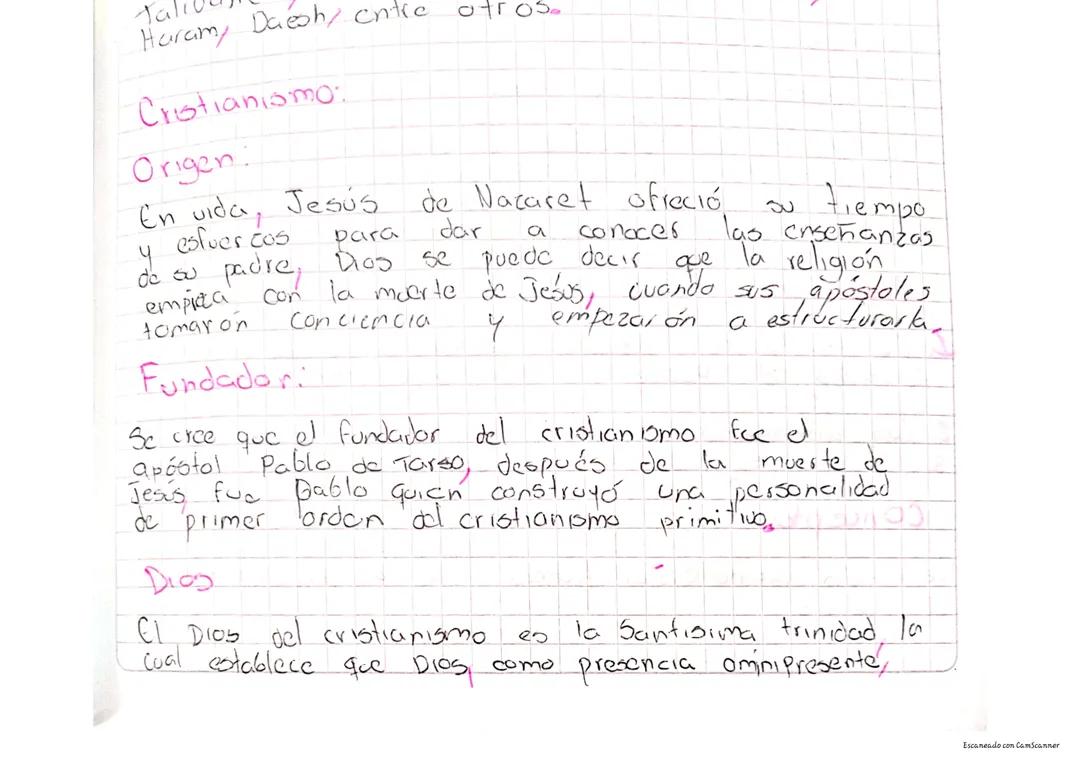 Haram, Daesh, entre otros.
Cristianismo:
Origen:
En vida, Jesús de Nazaret ofreció su tiempo
y esfuerzos para dar a conocer las enseñanzas
de su padre, Dios se puede decir que la religión
empieza con la muerte de Jesús, cuando sus apóstoles
tomarón conciencia y empezarón a estructurarla.
Fundador:
Se cree que el fundador del cristianismo fue el
apóstol Pablo de Tarso, después de la muerte de
Jesús fue Pablo quién construyó una personalidad
de primer orden del cristianismo primitivo.
Dios
El Dios del cristianismo es la Santisima trinidad la
cual establece que Dios, como presencia omnipresente,
Escaneado con CamScanner